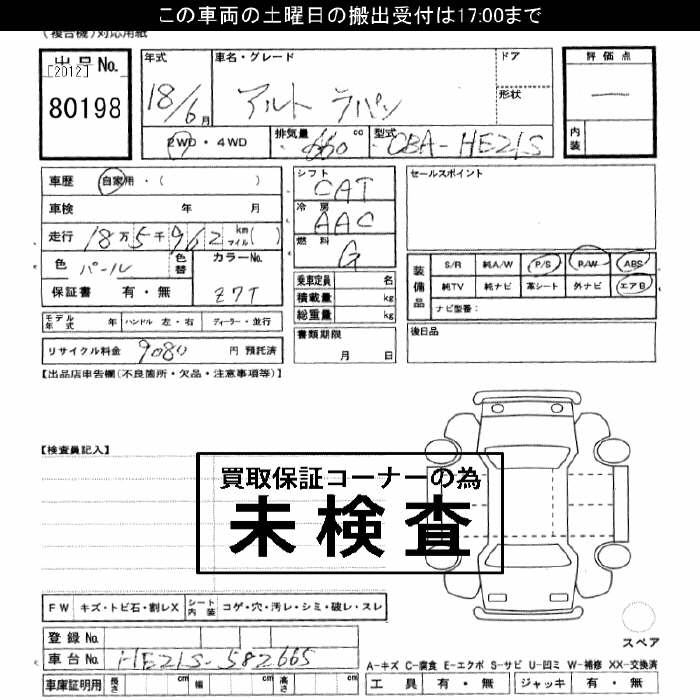 この車両の土曜日の搬出受付は17:00まで
(複合機)対応用紙
出品No.
[2012]
80198
年式
18/6月
車名・グレード
アルト ラパン
ドア
形状
2WD・4WD
排気量 660 cc
型式 CBA-HE21S
評価点
—
内装
車歴 自家用・( )
車検 年 月
走行 18万5千962 km マイル( )
色 パール
色替
カラーNo. Z7T
保証書 有・無
モデル年式 年 ハンドル 左・右 ディーラー・並行
リサイクル料金 9080 円 預託済
シフト CAT
冷房 AAC
燃料 G
乗車定員 名
積載量 kg
総重量 kg
書類期限
月 日
セールスポイント
装備品
S/R 純A/W P/S P/W ABS
純TV 純ナビ 革シート 外ナビ エアB
ナビ型番:
後日品
【出品店申告欄(不良箇所・欠品・注意事項等)】
【検査員記入】
買取保証コーナーの為
未検査
FW キズ・トビ石・割レX シート内装 コゲ・穴・汚レ・シミ・破レ・スレ
登録No.
車台No. HE21S-582665
車庫証明用 長さ cm 幅 cm 高さ cm
スペア
A-キズ C-腐食 E-エクボ S-サビ U-凹ミ W-補修 XX-交換済
工具 有・無 ジャッキ 有・無